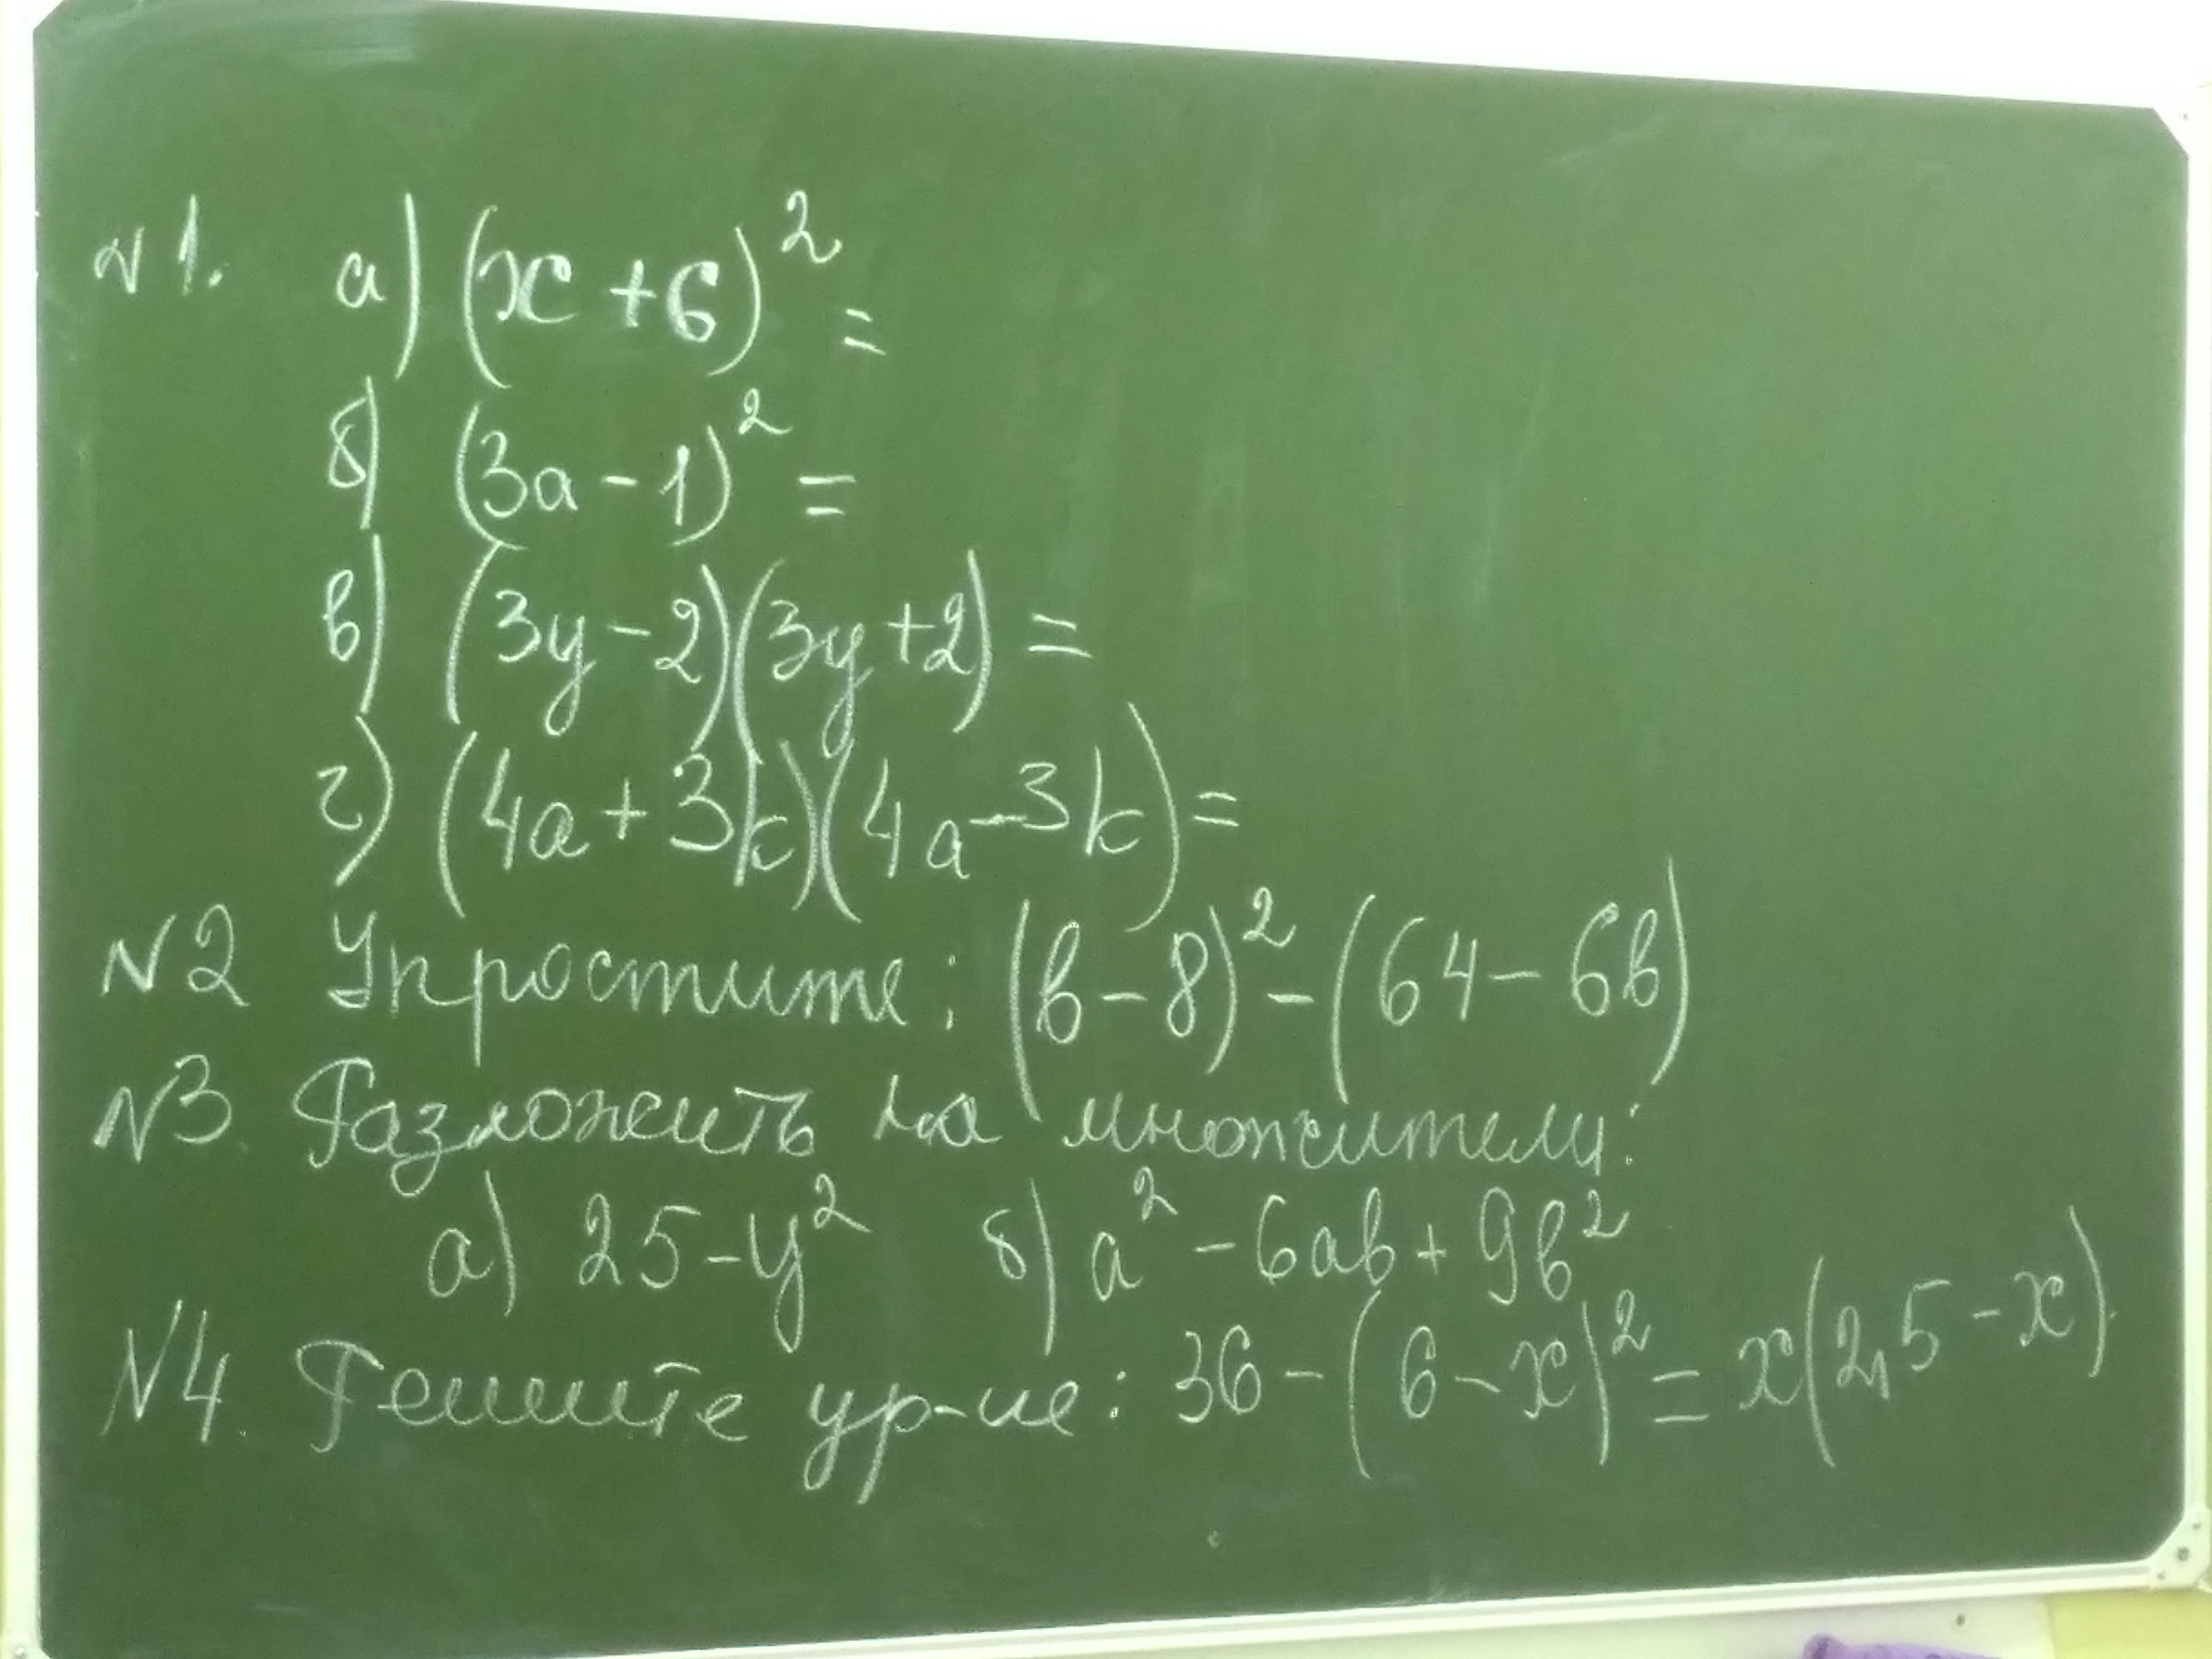 N1. а) (x+6)² =
б) (3a-1)² =
в) (3y-2)(3y+2) =
г) (4a+3k)(4a-3k) =
N2 Упростите: (в-8)² - (64-6в)
N3. Разложить на множители:
а) 25-y² б) a² - 6aв + 9в²
N4. Решите ур-ие: 36 - (6-x)² = x(2,5-x).